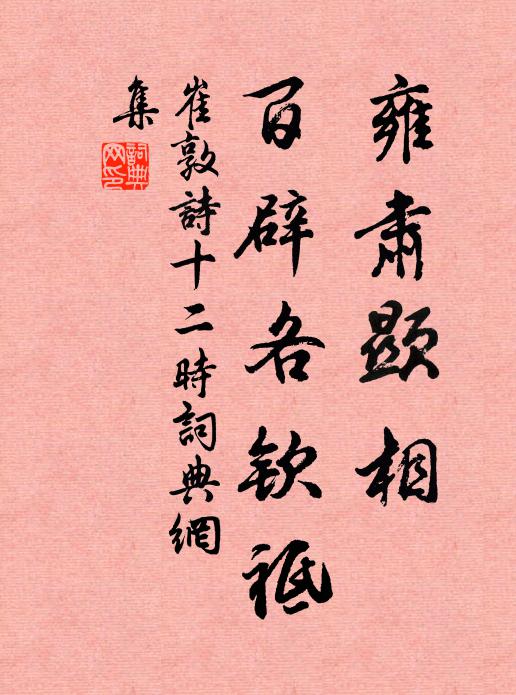 雍肅顯相
百辟各欽祗
崔敦詩十二時詞典網
集
詞典網印